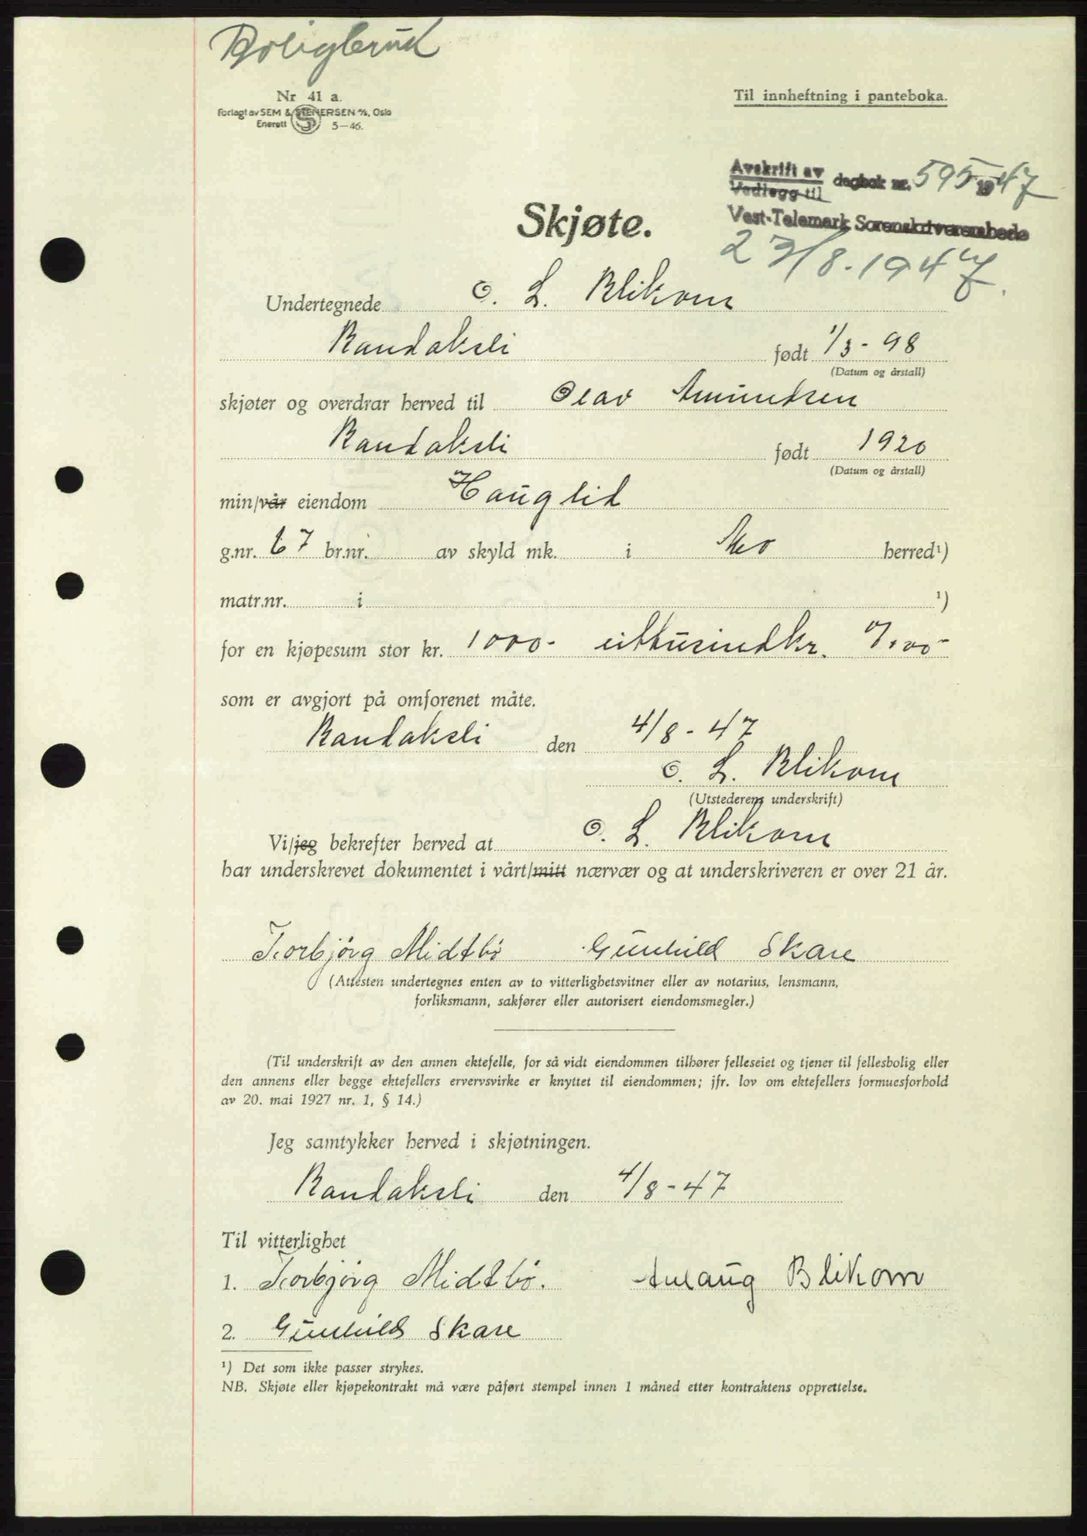 Boligbruk
Nr 41 a.
Forlagt av SEM & STENERSEN A/S, Oslo
Enerett 5—46.
Til innheftning i panteboka.
Avskrift av
Vedlegg til dagbok nr. 595 1947
Vest-Telemark Sorenskriverembede
23/8-1947.
Skjøte.
Undertegnede O. L. Blikom
Bandaksli født 1/3-98
(Datum og årstall)
skjøter og overdrar herved til Olav Amundsen
Bandaksli født 1920
(Datum og årstall)
min/vår eiendom Hauglid
g.nr. 67 br.nr. av skyld mk. i Mo herred¹)
matr.nr. i ¹)
for en kjøpesum stor kr. 1000- eittusindkr. 7,00-
som er avgjort på omforenet måte.
Bandaksli den 4/8-47
O. L. Blikom
(Utstederens underskrift)
Vi/jeg bekrefter herved at O. L. Blikom
har underskrevet dokumentet i vårt/mitt nærvær og at underskriveren er over 21 år.
Torbjörg Midtbö Gunhild Skare
(Attesten undertegnes enten av to vitterlighetsvitner eller av notarius, lensmann,
forliksmann, sakfører eller autorisert eiendomsmegler.)
(Til underskrift av den annen ektefelle, for så vidt eiendommen tilhører felleseiet og tjener til fellesbolig eller
den annens eller begge ektefellers ervervsvirke er knyttet til eiendommen; jfr. lov om ektefellers formuesforhold
av 20. mai 1927 nr. 1, § 14.)
Jeg samtykker herved i skjøtningen.
Bandaksli den 4/8-47
Til vitterlighet
1. Torbjörg Midtbö. Aslaug Blikom
2. Gunhild Skare
¹) Det som ikke passer strykes.
NB. Skjøte eller kjøpekontrakt må være påført stempel innen 1 måned etter kontraktens opprettelse.